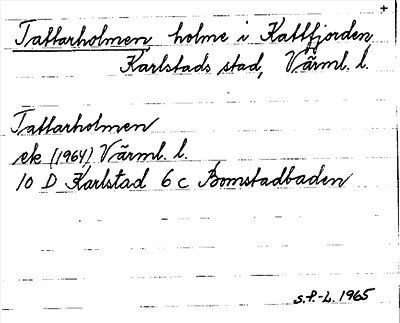 +
Tattarholmen, holme i Kattfjorden
Karlstads stad, Värml. l.
Tattarholmen
ek (1964) Värml. l.
10 D Karlstad 6 c Bomstadbaden
S.F.-L. 1965